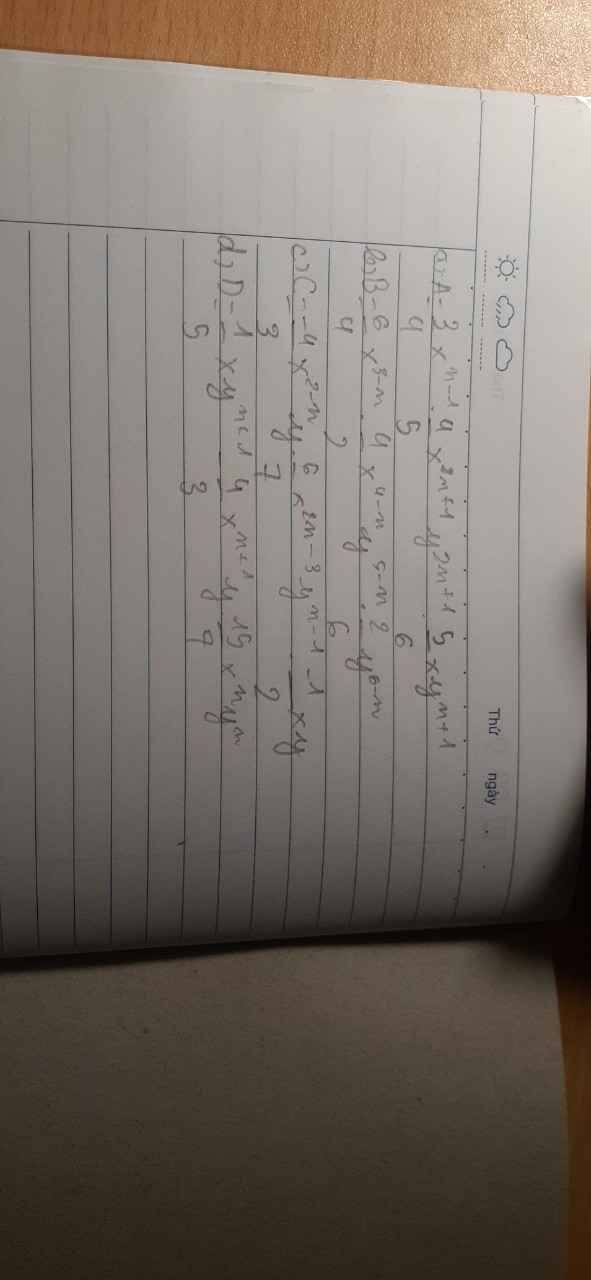 Thứ ngày
a) A = 3/4 x^{n-1} . 4/5 x^{2n+1} y^{2n+1} . 5/6 x y^{n+1}
b) B = 6/4 x^{3-n} . 4/2 x^{4-n} y^{5-n} . 2/6 y^{6-n}
c) C = -4/3 x^{2-n} y . 6/7 x^{2n-3} y^{n-1} . -1/2 xy
d) D = 1/5 x y^{n+1} . 4/3 x^{n+1} y . 15/9 x^n y^n